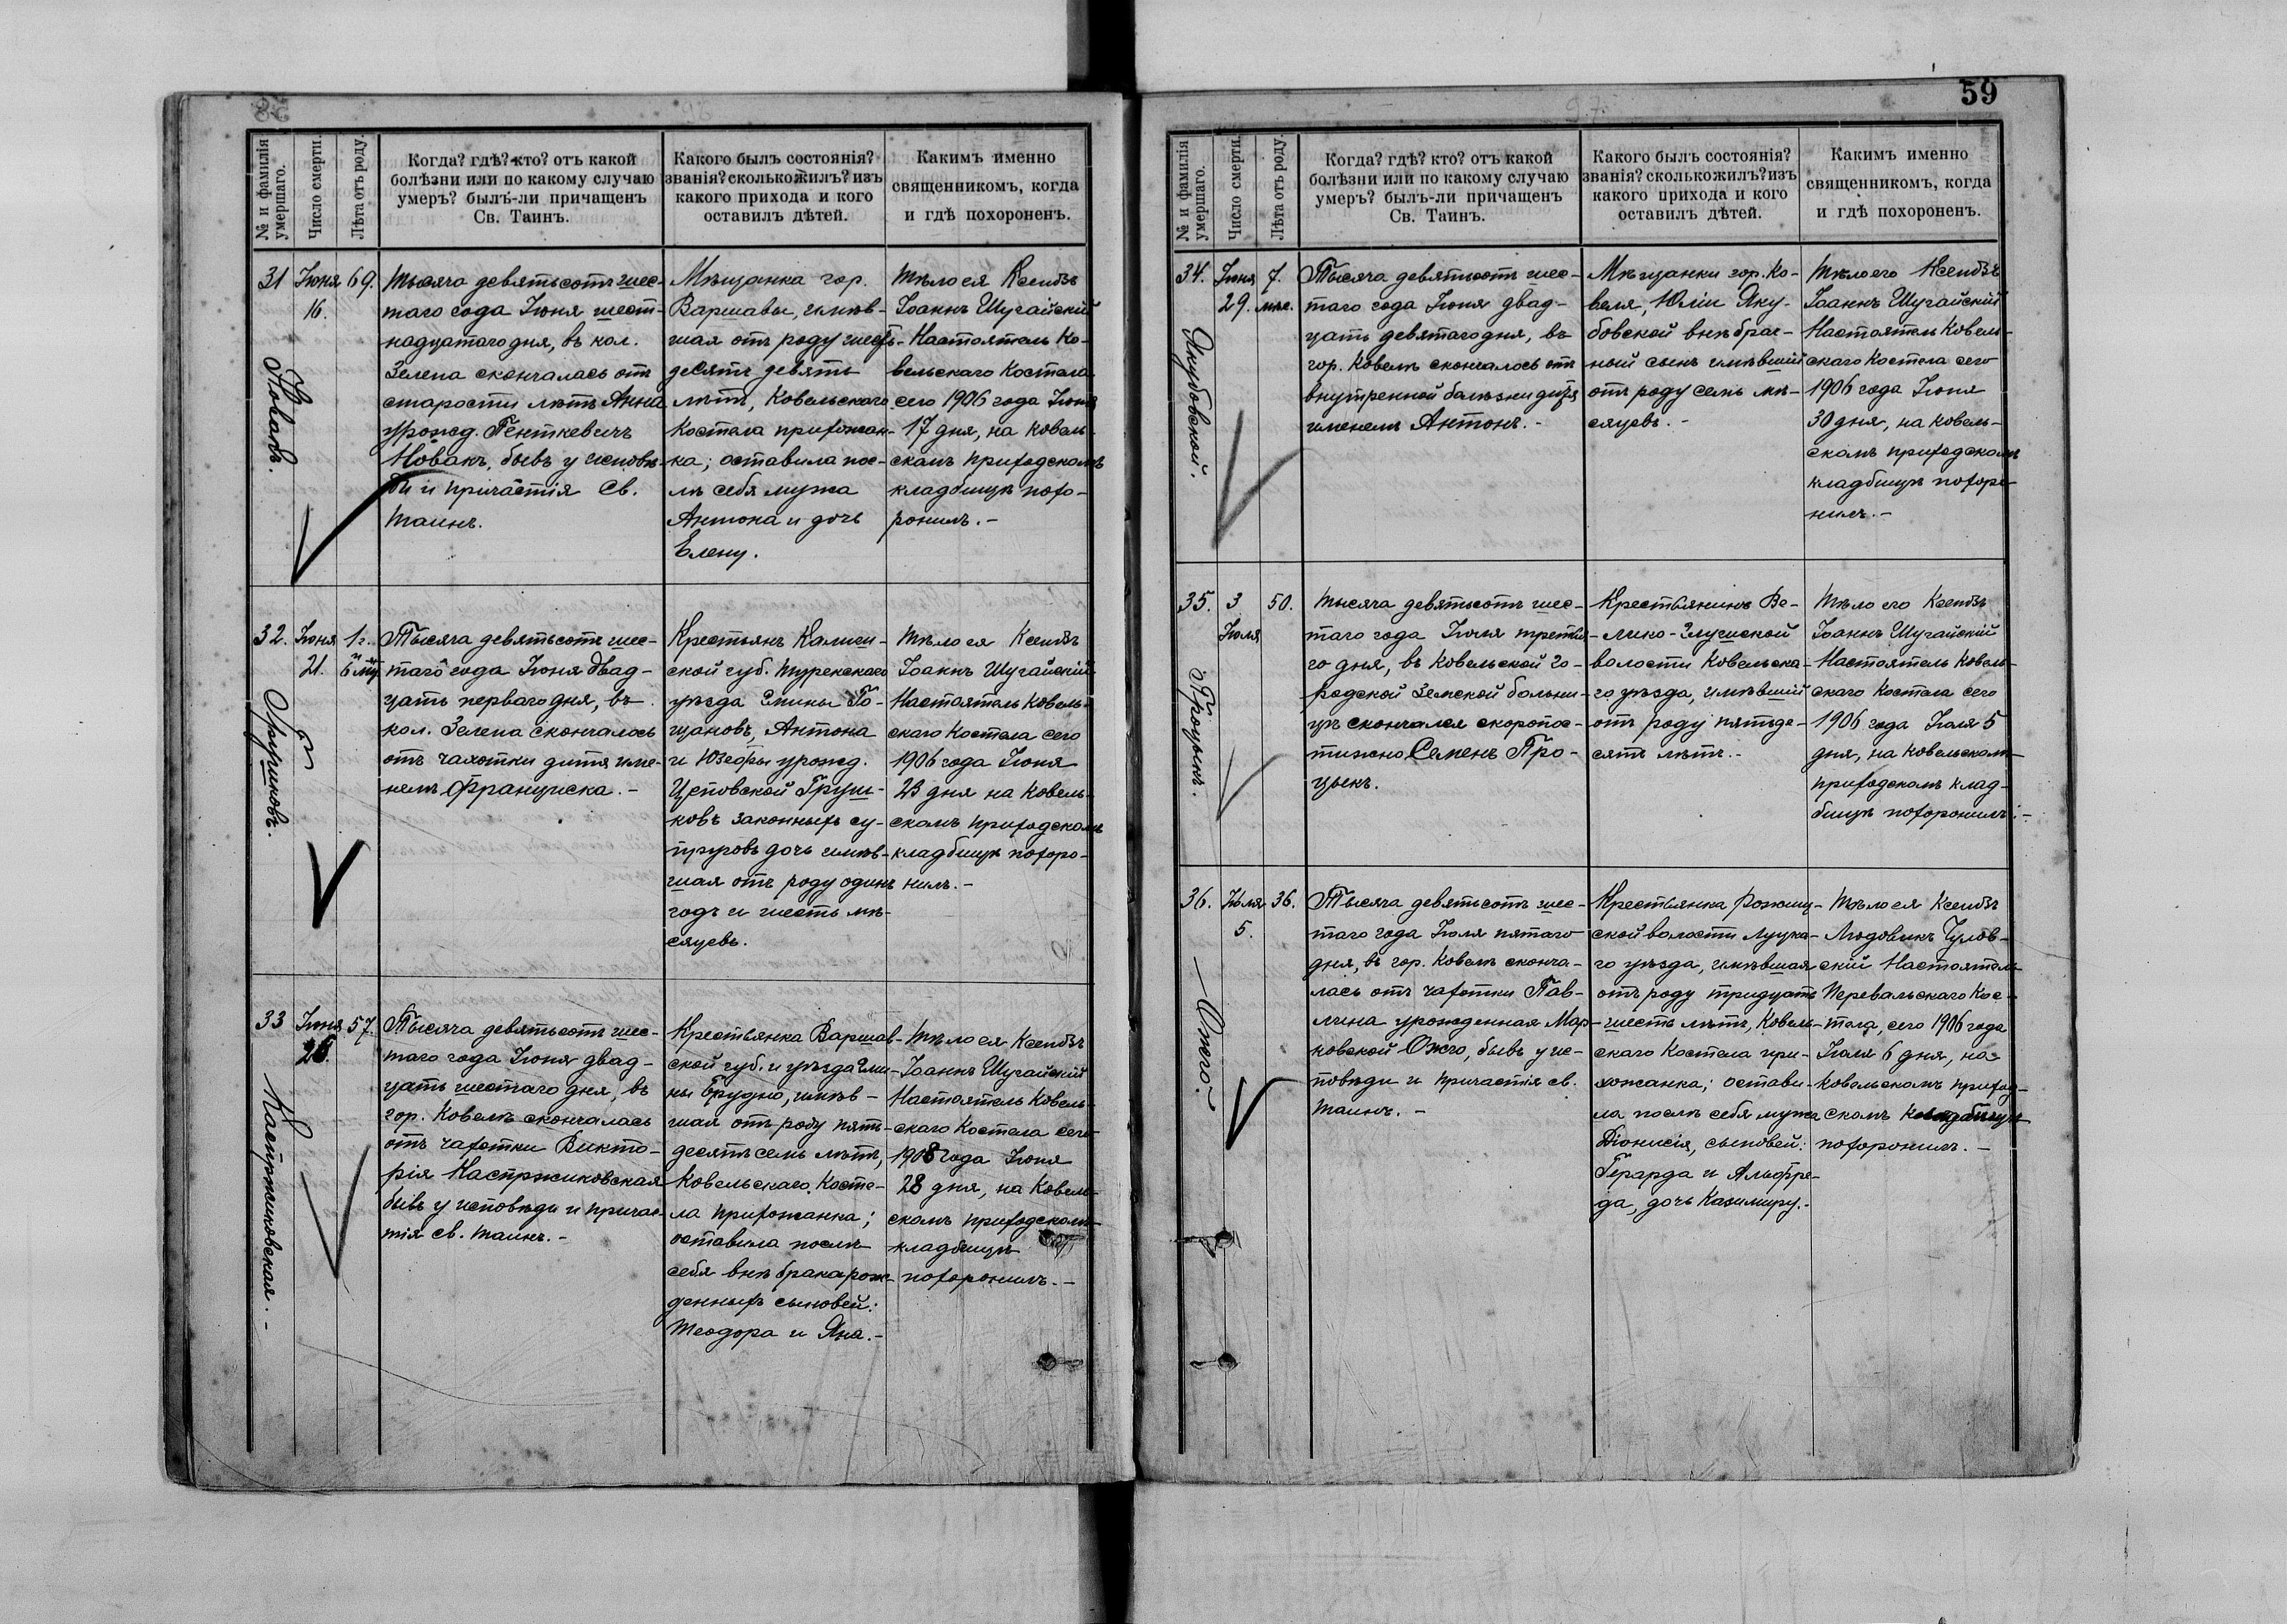 № и фамилія
умершаго.
Число смерти.
Лѣта отъ роду.
Когда? гдѣ? кто? отъ какой
болѣзни или по какому случаю
умеръ? былъ-ли причащенъ
Св. Таинъ.
Какого былъ состоянія?
званія? сколько жилъ? изъ
какого прихода и кого
оставилъ дѣтей.
Какимъ именно
священникомъ, когда
и гдѣ похороненъ.
31
Новакъ.
Іюня
16.
69.
Тысяча девятьсотъ шес-
таго года Іюня шест-
надцатаго дня, въ кол.
Зелена скончалась отъ
старости лѣтъ Анна
урожд. Пенткевичъ
Новакъ, бывъ у исповѣ-
ди и причастія Св.
Таинъ.
Мѣщанка гор.
Варшавы, имѣв-
шая отъ роду шесть-
десятъ девять
лѣтъ, Ковельскаго
Костела прихожан-
ка; оставила пос-
лѣ себя мужа
Антона и дочь
Елену.
Тѣло ея Ксендзъ
Іоаннъ Шугайскій
Настоятель Ко-
вельскаго Костела
сего 1906 года Іюня
17 дня, на Ковель-
скомъ приходскомъ
кладбищѣ похо-
ронилъ. -
32.
Грушковъ.
Іюня
21.
1 г.
6 мц
Тысяча девятьсотъ шес-
таго года Іюня двад-
цать перваго дня, въ
кол. Зелена скончалось
отъ чахотки дитя име-
немъ Франциска. -
Крестьянъ Калиш-
ской губ. Турекскаго
уѣзда Гмины Го-
щановъ, Антона
и Юзефы урожд.
Груш-
ковъ законныхъ су-
пруговъ дочь имѣв-
шая отъ роду одинъ
годъ и шесть мѣ-
сяцевъ.
Тѣло ея Ксендзъ
Іоаннъ Шугайскій
Настоятель Ковель-
скаго Костела сего
1906 года Іюня
23 дня на Ковель-
скомъ приходскомъ
кладбищѣ похоро-
нилъ. -
33
Каспржиковская. -
Іюня
26.
57.
Тысяча девятьсотъ шес-
таго года Іюня двад-
цать шестаго дня, въ
гор. Ковелѣ скончалась
отъ чахотки Викто-
рія Каспржиковская
бывъ у исповѣди и причас-
тія св. Таинъ. -
Крестьянка Варшав-
ской губ. и уѣзда Гми-
ны Брудно, имѣв-
шая отъ роду пять-
десятъ семь лѣтъ,
Ковельскаго Косте-
ла прихожанка;
оставила послѣ
себя внѣ брака рож-
денныхъ сыновей:
Теодора и Яна. -
Тѣло ея Ксендзъ
Іоаннъ Шугайскій
Настоятель Ковель-
скаго Костела сего
1906 года Іюня
28 дня, на Ковель-
скомъ приходскомъ
кладбищѣ
похоронилъ. -
59
№ и фамилія
умершаго.
Число смерти.
Лѣта отъ роду.
Когда? гдѣ? кто? отъ какой
болѣзни или по какому случаю
умеръ? былъ-ли причащенъ
Св. Таинъ.
Какого былъ состоянія?
званія? сколько жилъ? изъ
какого прихода и кого
оставилъ дѣтей.
Какимъ именно
священникомъ, когда
и гдѣ похороненъ.
34.
Якубовской.
Іюня
29.
7.
мѣс.
Тысяча девятьсотъ шес-
таго года Іюня двад-
цать девятаго дня, въ
гор. Ковелѣ скончалось отъ
внутренной болѣзни дитя
именемъ Антонъ. -
Мѣщанки гор. Ко-
веля, Юліи Яку-
бовской внѣ брач-
ный сынъ имѣвшій
отъ роду семь мѣ-
сяцевъ. -
Тѣло его Ксендзъ
Іоаннъ Шугайскій
Настоятель Ковель-
скаго Костела сего
1906 года Іюня
30 дня, на Ковель-
скомъ приходскомъ
кладбищѣ похоро-
нилъ. -
35.
Процыкъ.
3
Іюля
50.
Тысяча девятьсотъ шес-
таго года Іюля третья-
го дня, въ Ковельской го-
родской Земской больни-
цѣ скончался скоропос-
тижно Семенъ Про-
цыкъ.
Крестьянинъ Ве-
лико-Глушской
волости Ковельска-
го уѣзда, имѣвшій
отъ роду пятьде-
сятъ лѣтъ. -
Тѣло его Ксендзъ
Іоаннъ Шугайскій
Настоятель Ковель-
скаго Костела сего
1906 года Іюля 5
дня, на Ковельскомъ
приходскомъ клад-
бищѣ похоронилъ. -
36.
Ожго.
Іюля
5.
36.
Тысяча девятьсотъ шес-
таго года Іюля пятаго
дня, въ гор. Ковелѣ сконча-
лась отъ чахотки Пав-
лина урожденная Мар-
ковской Ожго, бывъ у ис-
повѣди и причастія св.
Таинъ. -
Крестьянка Рожищ-
ской волости Луцка-
го уѣзда, имѣвшая
отъ роду тридцать
шесть лѣтъ, Ковель-
скаго Костела при-
хожанка; остави-
ла послѣ себя мужа
Діонисія, сыновей:
Герарда и Альфре-
да, дочь Казимиру. -
Тѣло ея Ксендзъ
Людовикъ Чулов-
скій Настоятель
Перевальскаго Кос-
тела, сего 1906 года
Іюля 6 дня, на
Ковельскомъ приход-
скомъ кладбищѣ
похоронилъ. -